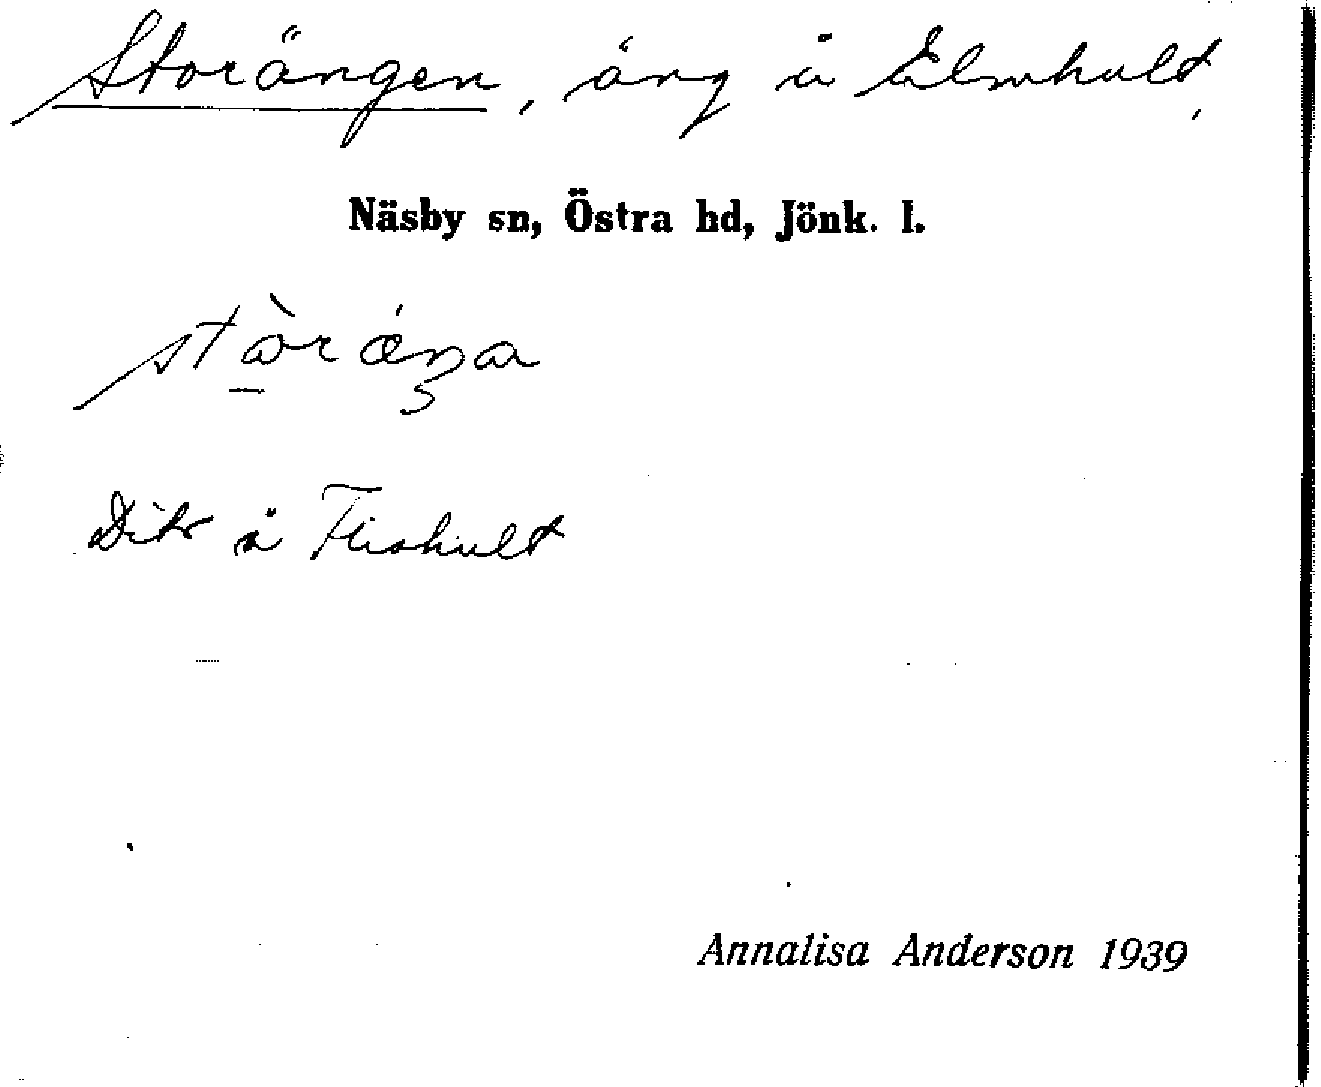 Storängen, äng å Elmhult,
Näsby sn, Östra hd, Jönk. l.
stòräŋa
Dito å Flishult
Annalisa Anderson 1939